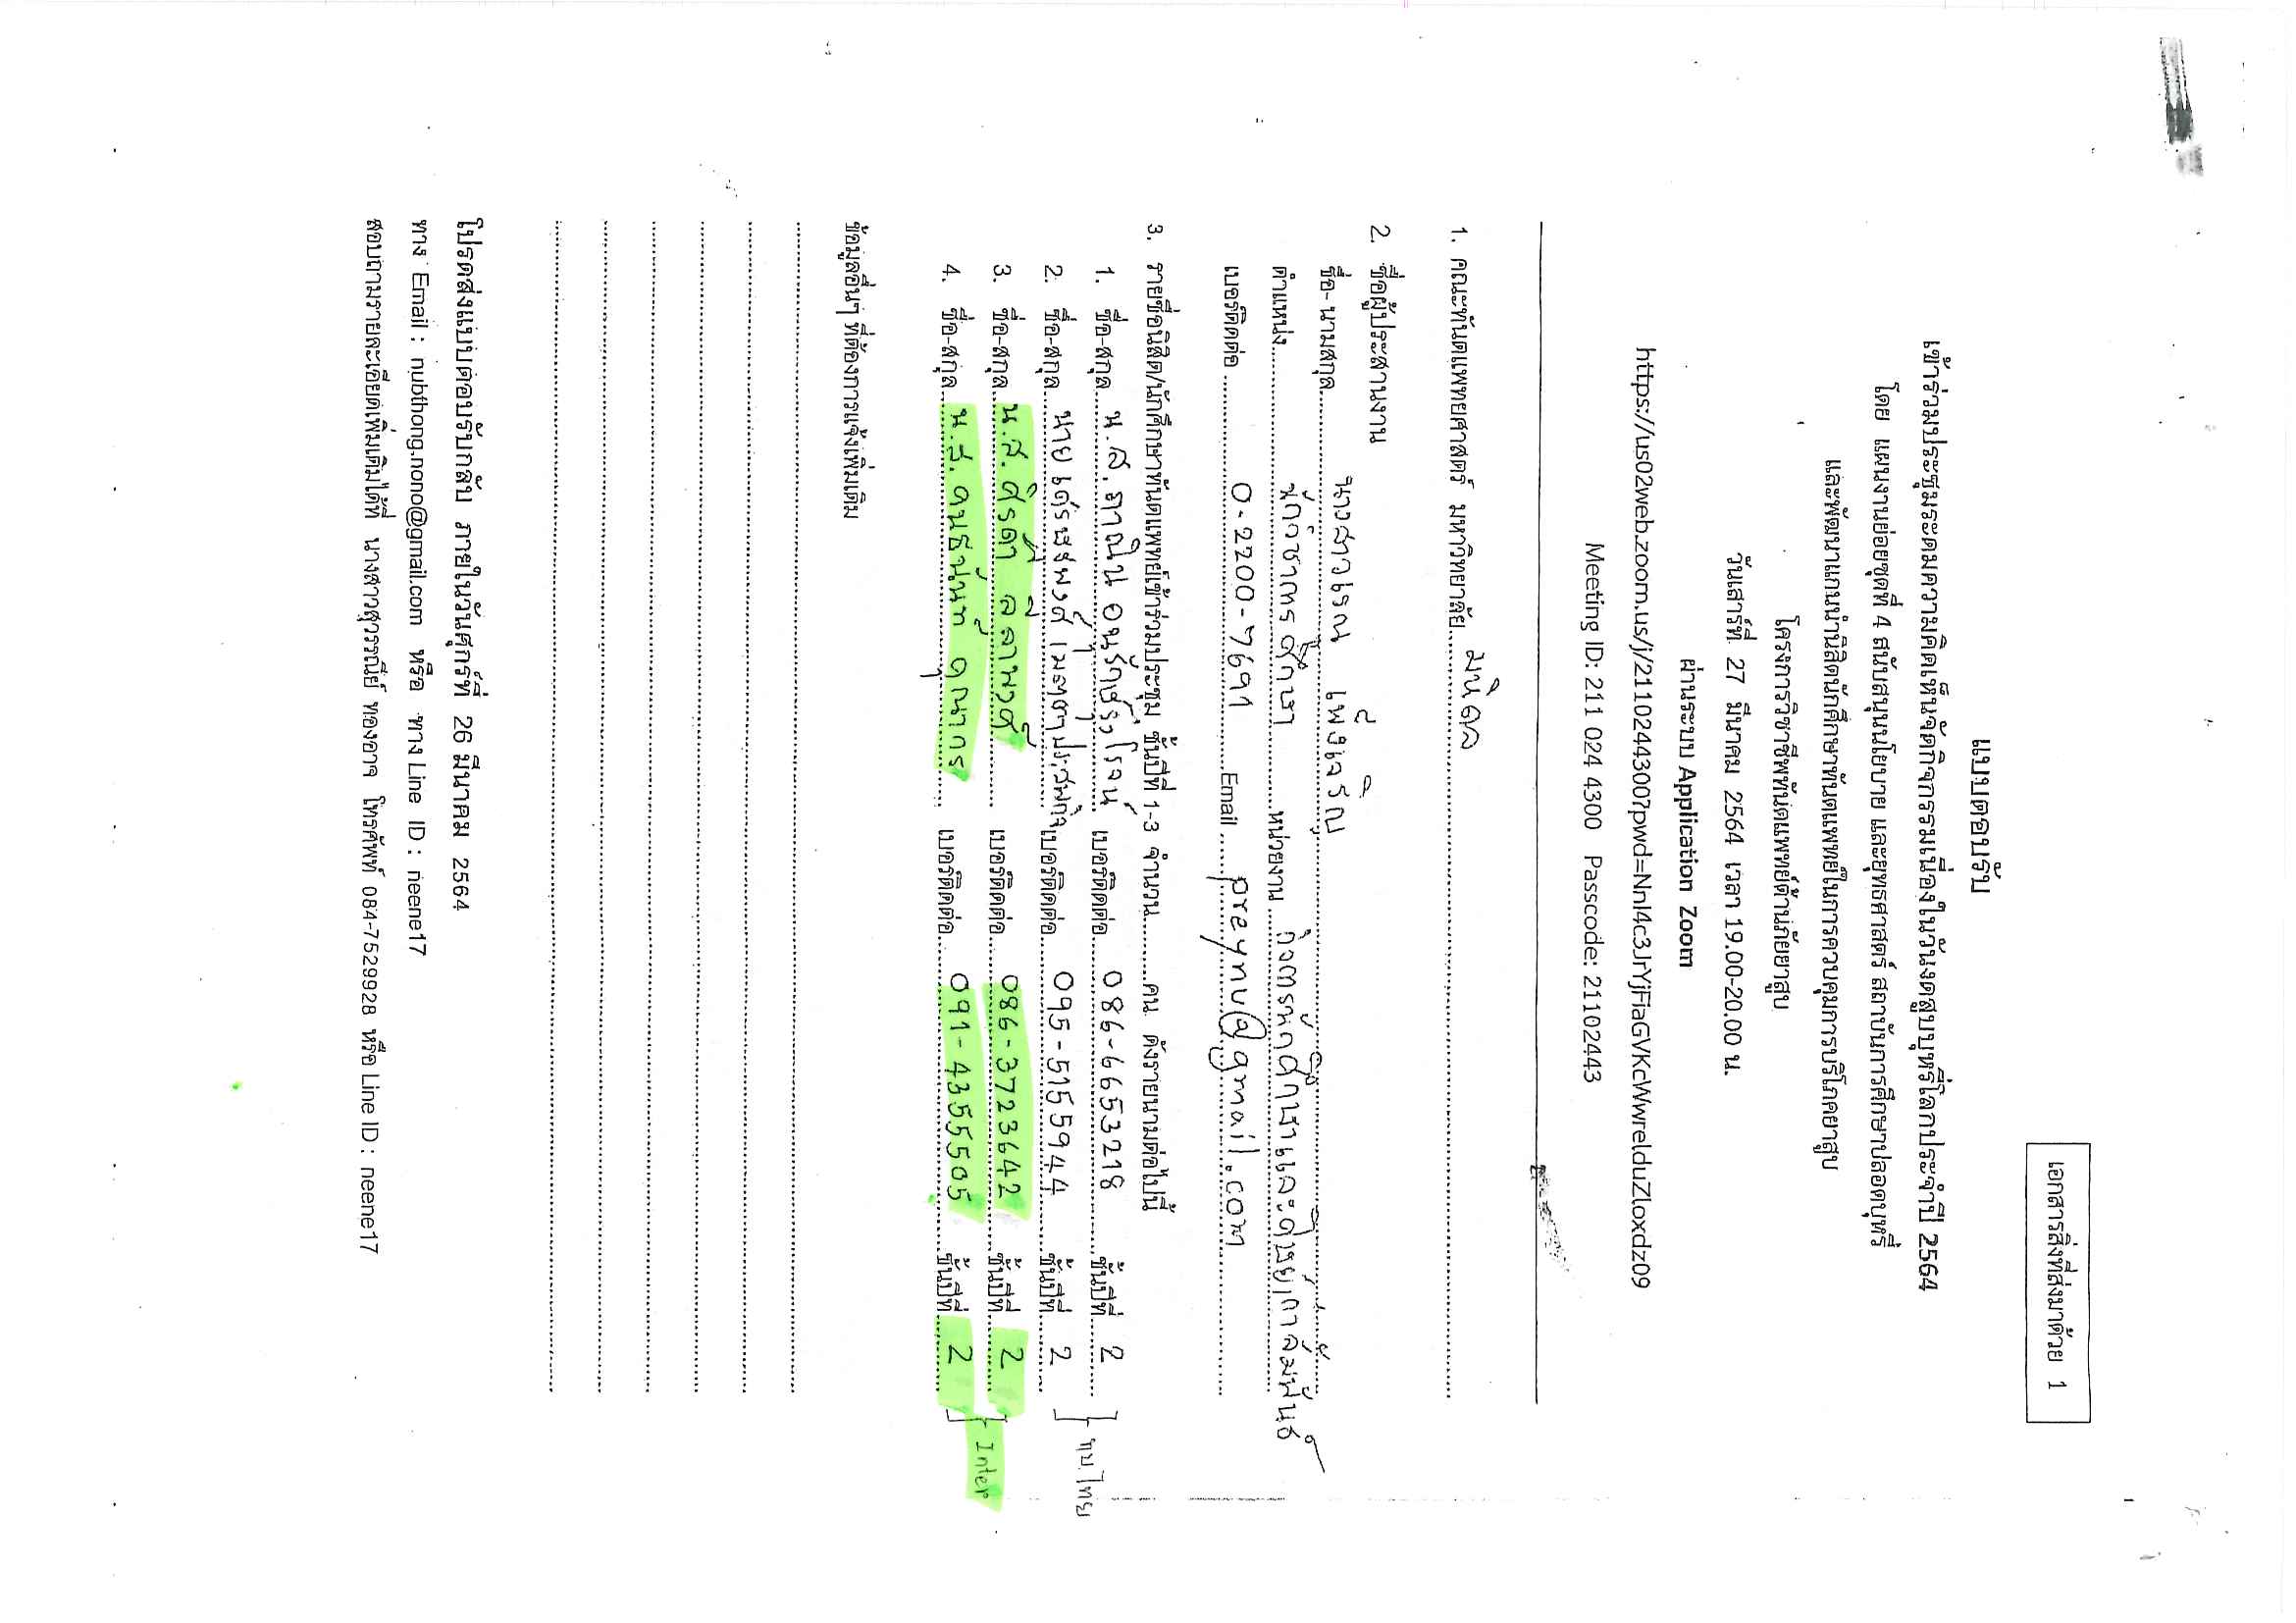 เอกสารสิ่งที่ส่งมาด้วย 1
แบบตอบรับ
เข้าร่วมประชุมระดมความคิดเห็นจัดกิจกรรมเนื่องในวันงดสูบบุหรี่โลกประจำปี 2564
โดย แผนงานย่อยชุดที่ 4 สนับสนุนนโยบาย และยุทธศาสตร์ สถาบันการศึกษาปลอดบุหรี่
และพัฒนาแกนนำนิสิตนักศึกษาทันตแพทย์ในการควบคุมการบริโภคยาสูบ
โครงการวิชาชีพทันตแพทย์ต้านภัยยาสูบ
วันเสาร์ที่ 27 มีนาคม 2564 เวลา 19.00-20.00 น.
ผ่านระบบ Application Zoom
https://us02web.zoom.us/j/2110244300?pwd=NnI4c3JrYjFiaGVKcWwrelduZloxdz09
Meeting ID: 211 024 4300 Passcode: 21102443
1. คณะทันตแพทยศาสตร์ มหาวิทยาลัย มหิดล
2. ชื่อผู้ประสานงาน
ชื่อ- นามสกุล นางสาวเรณู เพ็งเจริญ
ตำแหน่ง นักวิชาการศึกษา หน่วยงาน กิจการนักศึกษาและศิษย์เก่าสัมพันธ์
เบอร์ติดต่อ 0-2200-7691 Email preynu@gmail.com
3. รายชื่อนิสิต/นักศึกษาทันตแพทย์เข้าร่วมประชุม ชั้นปีที่ 1-3 จำนวน..........คน ดังรายนามต่อไปนี้
1. ชื่อ-สกุล น.ส. ภาณิน อนุรักษ์รุ่งโรจน์ เบอร์ติดต่อ 086-6653218 ชั้นปีที่ 2 ทบ.ไทย
2. ชื่อ-สกุล นาย เศรษฐพงศ์ เบอร์ติดต่อ 095-5155944 ชั้นปีที่ 2
3. ชื่อ-สกุล น.ส. ศิรดา ลีลาพงศ์ เบอร์ติดต่อ 086-3723642 ชั้นปีที่ 2 Inter
4. ชื่อ-สกุล น.ส. คนธนันท์ คุณากร เบอร์ติดต่อ 091-4355505 ชั้นปีที่ 2
ข้อมูลอื่นๆ ที่ต้องการแจ้งเพิ่มเติม
โปรดส่งแบบตอบรับกลับ ภายในวันศุกร์ที่ 26 มีนาคม 2564
ทาง Email : nubthong.nono@gmail.com หรือ ทาง Line ID : neene17
สอบถามรายละเอียดเพิ่มเติมได้ที่ นางสาวสุวรรณีย์ ทองอาจ โทรศัพท์ 084-7529928 หรือ Line ID : neene17